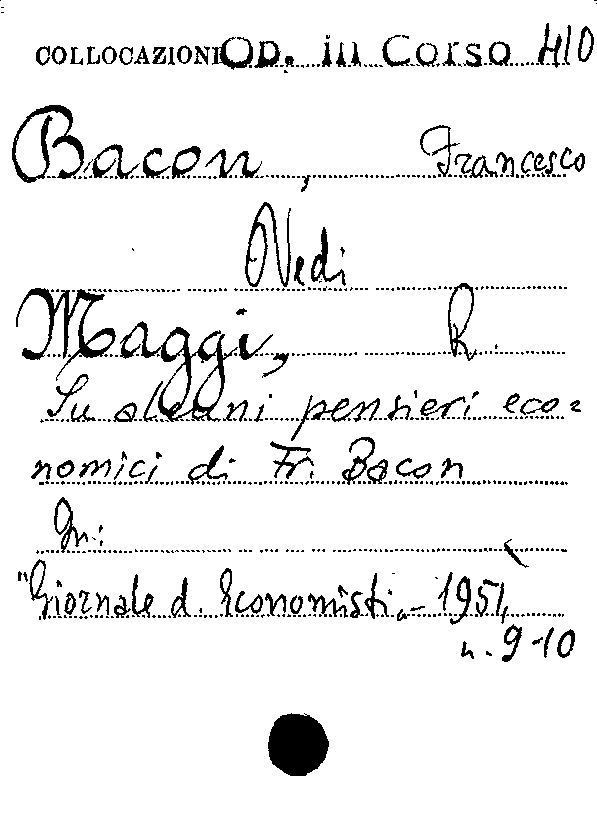 COLLOCAZIONE Op. in Corso 410
Bacon, Francesco
Vedi
Maggi, R.
Su alcuni pensieri eco=
nomici di Fr. Bacon
In:
"Giornale d. Economisti" - 1951,
n. 9-10